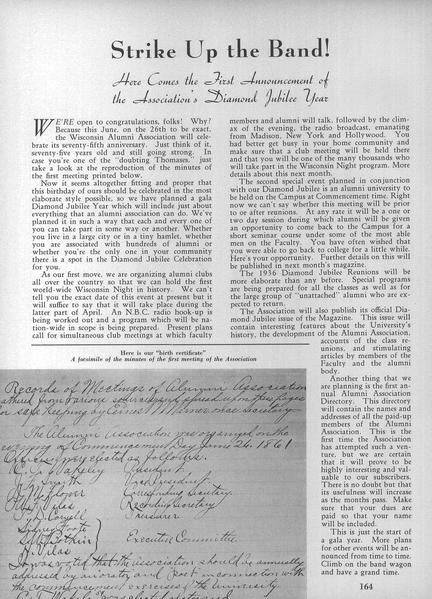 Strike Up the Band!
Here Comes the First Announcement of
the Association's Diamond Jubilee Year
WE'RE open to congratulations, folks! Why?
Because this June, on the 26th to be exact,
the Wisconsin Alumni Association will cele-
brate its seventy-fifth anniversary. Just think of it,
seventy-five years old and still going strong. In
case you're one of the "doubting Thomases," just
take a look at the reproduction of the minutes of
the first meeting printed below.
Now it seems altogether fitting and proper that
this birthday of ours should be celebrated in the most
elaborate style possible, so we have planned a gala
Diamond Jubilee Year which will include just about
everything that an alumni association can do. We've
planned it in such a way that each and every one of
you can take part in some way or another. Whether
you live in a large city or in a tiny hamlet, whether
you are associated with hundreds of alumni or
whether you're the only one in your community
there is a spot in the Diamond Jubilee Celebration
for you.
As our first move, we are organizing alumni clubs
all over the country so that we can hold the first
world-wide Wisconsin Night in history. We can't
tell you the exact date of this event at present but it
will suffice to say that it will take place during the
latter part of April. An N.B.C. radio hook-up is
being worked out and a program which will be na-
tion-wide in scope is being prepared. Present plans
call for simultaneous club meetings at which faculty
members and alumni will talk, followed by the clim-
ax of the evening, the radio broadcast, emanating
from Madison, New York and Hollywood. You
had better get busy in your home community and
make sure that a club meeting will be held there
and that you will be one of the many thousands who
will take part in the Wisconsin Night program. More
details about this next month.
The second special event planned in conjunction
with our Diamond Jubilee is an alumni university to
be held on the Campus at Commencement time. Right
now we can't say whether this meeting will be prior
to or after reunions. At any rate it will be a one or
two day session during which alumni will be given
an opportunity to come back to the Campus for a
short seminar course under some of the most able
men on the Faculty. You have often wished that
you were able to go back to college for a little while.
Here's your opportunity. Further details on this will
be published in next month's magazine.
The 1936 Diamond Jubilee Reunions will be
more elaborate than any before. Special programs
are being prepared for all the classes as well as for
the large group of "unattached" alumni who are ex-
pected to return.
The Association will also publish its official Dia-
mond Jubilee issue of the Magazine. This issue will
contain interesting features about the University's
history, the development of the Alumni Association,
accounts of the class re-
unions, and stimulating
articles by members of the
Faculty and the alumni
body.
Another thing that we
are planning is the first an-
nual Alumni Association
Directory. This directory
will contain the names and
addresses of all the paid-up
members of the Alumni
Association. This is the
first time the Association
has attempted such a ven-
ture, but we are certain
that it will prove to be
highly interesting and val-
uable to our subscribers.
There is no doubt but that
its usefulness will increase
as the months pass. Make
sure that your dues are
paid so that your name
will be included.
This is just the start of
a gala year. More plans
for other events will be an-
nounced from time to time.
Climb on the band wagon
and have a grand time.
Here is our "birth certificate"
A facsimile of the minutes of the first meeting of the Association
Records of Meetings of Alumni Association
from various sources and spread upon these pages
for safe keeping by
The Alumni Association was organized on the
evening of Commencement Day June 26. 1861
Officers were elected as follows.
President
Vice President.
Corresponding Secretary.
Vilas Recording Secretary
Treasurer
Executive Committee.
Vilas
It was voted that the association should be annually
addressed by an orator and poet in connection with
the commencement exercises of the University.
164